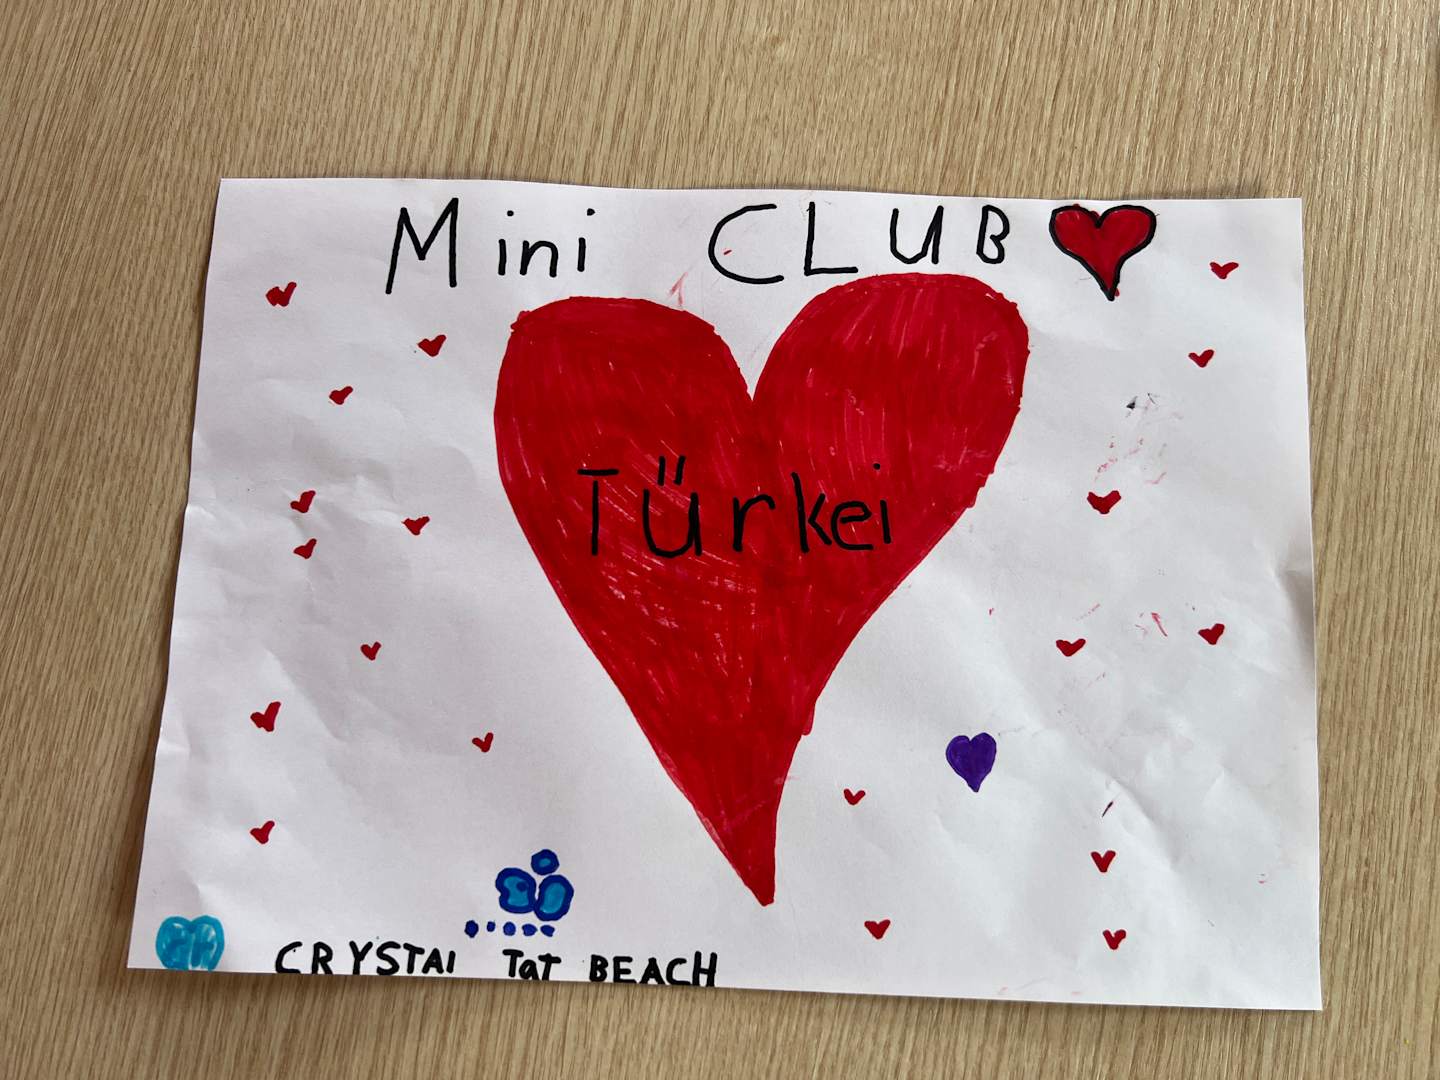 Mini CLUB
Türkei
CRYSTAl TaT BEACH